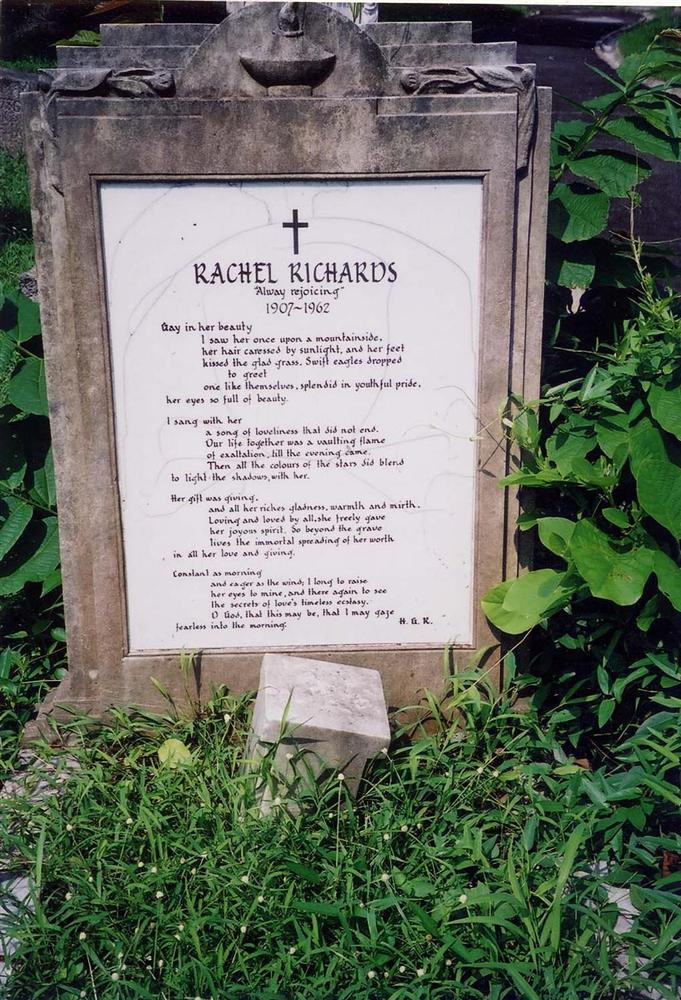 RACHEL RICHARDS
"Alway rejoicing"
1907~1962
Gay in her beauty
I saw her once upon a mountainside,
her hair caressed by sunlight, and her feet
kissed the glad grass. Swift eagles dropped
to greet
one like themselves, splendid in youthful pride,
her eyes so full of beauty.
I sang with her
a song of loveliness that did not end.
Our life together was a vaulting flame
of exaltation, till the evening came.
Then all the colours of the stars did blend
to light the shadows, with her.
Her gift was giving,
and all her riches gladness, warmth and mirth.
Loving and loved by all, she freely gave
her joyous spirit. So beyond the grave
lives the immortal spreading of her worth
in all her love and giving.
Constant as morning
and eager as the wind; I long to raise
her eyes to mine, and there again to see
the secrets of love's timeless ecstasy.
O God, that this may be, that I may gaze
fearless into the morning.
H. G. K.